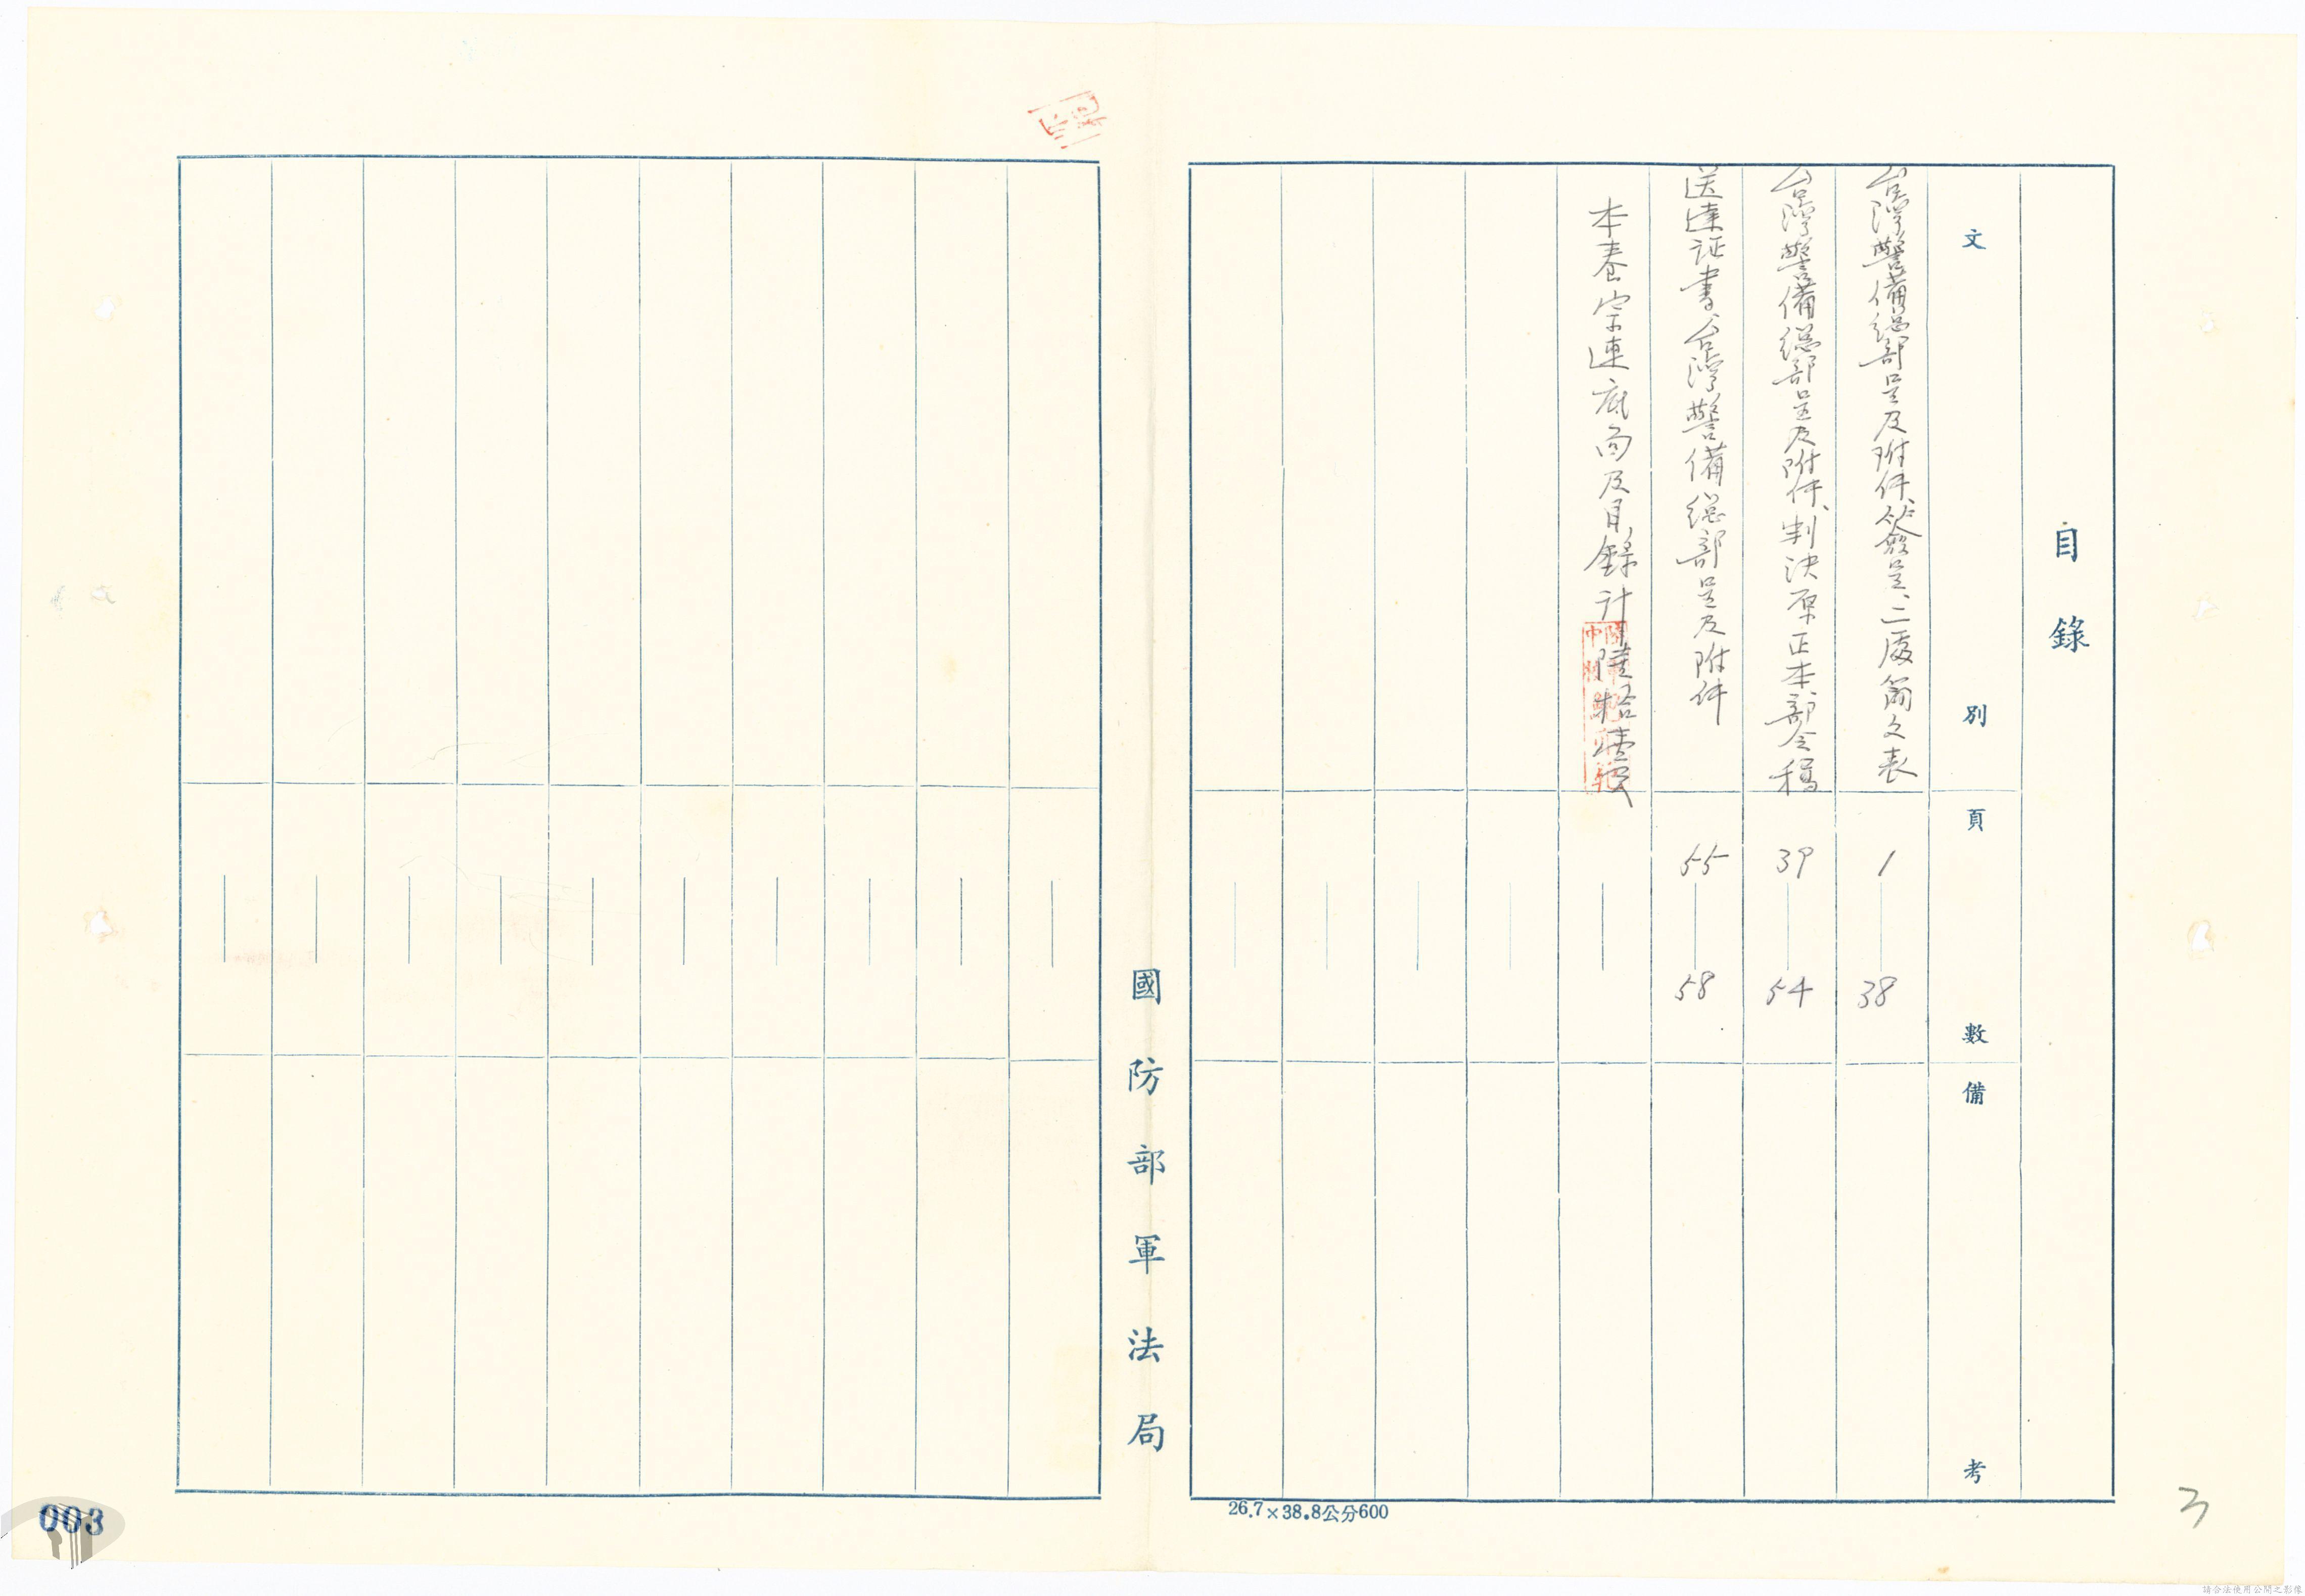 目錄
文別
頁數
備考
台灣警備總部呈及附件、簽呈、二廳簡文表
1—38
台灣警備總部呈及附件、判決原正本、部令稿
39—54
送達証書、台灣警備總部呈及附件
55—58
本卷宗連底面及目錄計陸拾壹頁
國防部軍法局
26.7×38.8公分600
003
3
請合法使用公開之影像